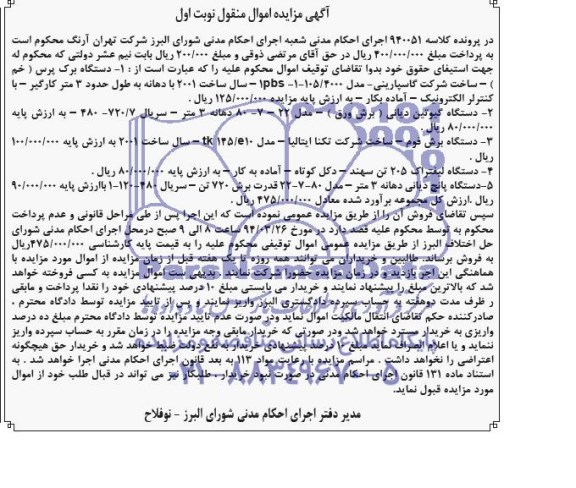 آگهی مزایده اموال منقول نوبت اول
در پرونده کلاسه ۹۴۰۰۵۱ اجرای احکام مدنی شعبه اجرای احکام مدنی شورای البرز شرکت تهران آرنگ محکوم است
به پرداخت مبلغ ۴۰۰/۰۰۰/۰۰۰ ریال در حق آقای مرتضی ذوقی و مبلغ ۲۰۰/۰۰۰ ریال بابت نیم عشر دولتی که محکوم له
جهت استیفای حقوق خود بدوا تقاضای توقیف اموال محکوم علیه را که عبارت است از : ۱- دستگاه برک پرس ( خم
) – ساخت شرکت گاسپارینی- مدل ۱pbs -۱-۱۰۵/۴۰۰۰ – سال ساخت ۲۰۰۱ با دهانه به طول حدود ۳ متر کارگیر – با
کنترلر الکترونیک – آماده بکار – به ارزش پایه مزایده ۱۲۵/۰۰۰/۰۰۰ ریال .
۲- دستگاه گیوتین دیانی ( برش ورق ) – مدل ۲۲ – ۷- ۸۰ دهانه ۳ متر – سریال ۷۲۰/۷- ۴۸۰ – به ارزش پایه
۸۰/۰۰۰/۰۰۰ ریال .
۳- دستگاه برش فوم – ساخت شرکت تکنا ایتالیا – مدل tk ۱۴۵/e۱۰ – سال ساخت ۲۰۰۱ به ارزش پایه ۱۰۰/۰۰۰/۰۰۰
ریال .
۴- دستگاه لیفتراک ۲۰۵ تن سهند – دکل کوتاه – آماده به کار – به ارزش پایه ۸۰/۰۰۰/۰۰۰ ریال .
۵-دستگاه پانچ دیانی دهانه ۳ متر – مدل ۸۰-۷-۲۲ قدرت برش ۷۲۰ تن – سریال ۴۸۰-۱۲۰-۱ باارزش پایه ۹۰/۰۰۰/۰۰۰
ریال .ارزش کل مجموعه برآورد شده معادل ۴۷۵/۰۰۰/۰۰۰ ریال .
سپس تقاضای فروش آن را از طریق مزایده عمومی نموده است که این اجرا پس از طی مراحل قانونی و عدم پرداخت
محکوم به توسط محکوم علیه قصد دارد در مورخ ۹۴/۰۳/۲۶ ساعت ۸ الی ۹ صبح درمحل اجرای احکام مدنی شورای
حل اختلاف البرز از طریق مزایده عمومی اموال توقیفی محکوم علیه را به قیمت پایه کارشناسی ۴۷۵/۰۰۰/۰۰۰ریال
به فروش برساند. طالبین و خریداران می توانند همه روزه تا یک هفته قبل از زمان مزایده از اموال مورد مزایده با
هماهنگی این اجرا بازدید و در زمان مزایده حضورا شرکت نمایند . بدیهی ست اموال مزایده به کسی فروخته خواهد
شد که بالاترین مبلغ را پیشنهاد نمایند و خریدار می بایستی مبلغ ۱۰ درصد پیشنهادی خود را نقدا پرداخت و مابقی
ر ظرف مدت دوهفته به حساب سپرده دادگستری البرز واریز نمایند و پس از تایید مزایده توسط دادگاه محترم .
صادرکننده حکم تقاضای انتقال مالکیت اموال نماید ودر صورت عدم تایید مزایده توسط دادگاه محترم مبلغ ده درصد
واریزی به خریدار مسترد خواهد شد ودر صورتی که خریدار مابقی وجه مزایده را در زمان مقرر به حساب سپرده واریز
ننماید و یا اعلام انصراف نماید مبلغ ۱۰ درصد پیشنهادی خریدار به نفع دولت ضبط خواهد شد و خریدار حق هیچگونه
اعتراضی را نخواهد داشت . مراسم مزایده با رعایت مواد ۱۱۳ به بعد قانون اجرای احکام مدنی اجرا خواهد شد . به
استناد ماده ۱۳۱ قانون اجرای احکام مدنی در صورت نبود خریدار ، طلبکار نیز می تواند در قبال طلب خود از اموال
مورد مزایده قبول نماید.
مدیر دفتر اجرای احکام مدنی شورای البرز - نوفلاح